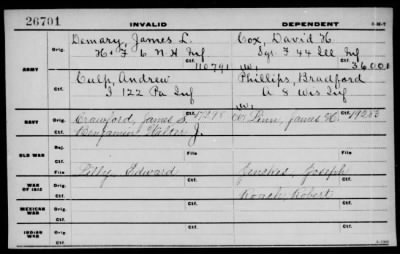 26701 INVALID DEPENDENT
ARMY
Orig. Demary, James L. Cox, David H.
H. F 6 N H Inf Sgt. F 44 Ill Inf
Ctf. 110791 W. Ctf. 36000
Culp, Andrew Phillips, Bradford
I 122 Pa Inf A 8 Wis Inf
W.
NAVY
Orig. Crawford, James S. 17298 Linn, James H. 19283
Ctf. Benjamin J.
OLD WAR
Rej.
Ctf. Ctf.
WAR OF 1812
File Edward File Jenches, Joseph
Ctf. Ctf. Roach, Robert
MEXICAN WAR
Orig.
Ctf. Ctf.
INDIAN WAR
Orig.
Ctf. Ctf.